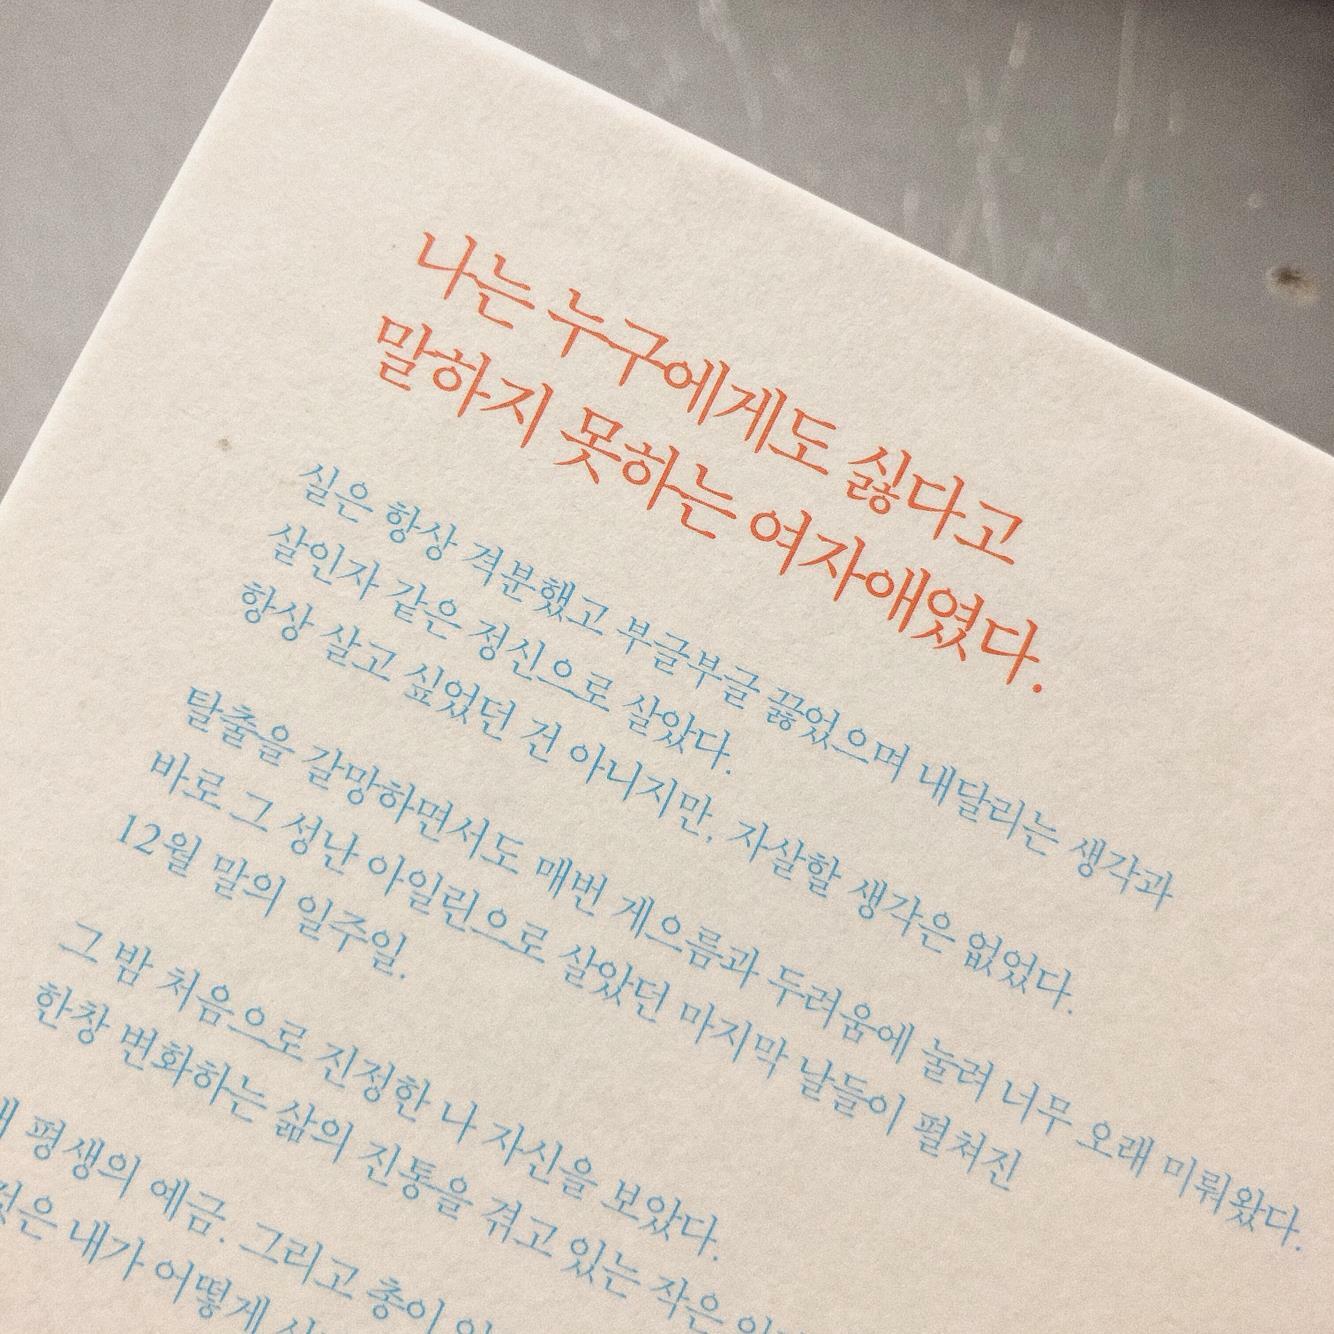 나는 누구에게도 싫다고
말하지 못하는 여자애였다.
실은 항상 격분했고 부글부글 끓었으며 내달리는 생각과
살인자 같은 정신으로 살았다.
항상 살고 싶었던 건 아니지만, 자살할 생각은 없었다.
탈출을 갈망하면서도 매번 게으름과 두려움에 눌려 너무 오래 미뤄왔다.
바로 그 성난 아일린으로 살았던 마지막 날들이 펼쳐진
12월 말의 일주일.
그 밤 처음으로 진정한 나 자신을 보았다.
한창 변화하는 삶의 진통을 겪고 있는 작은
평생의 예금. 그리고 총이
내가 어떻게